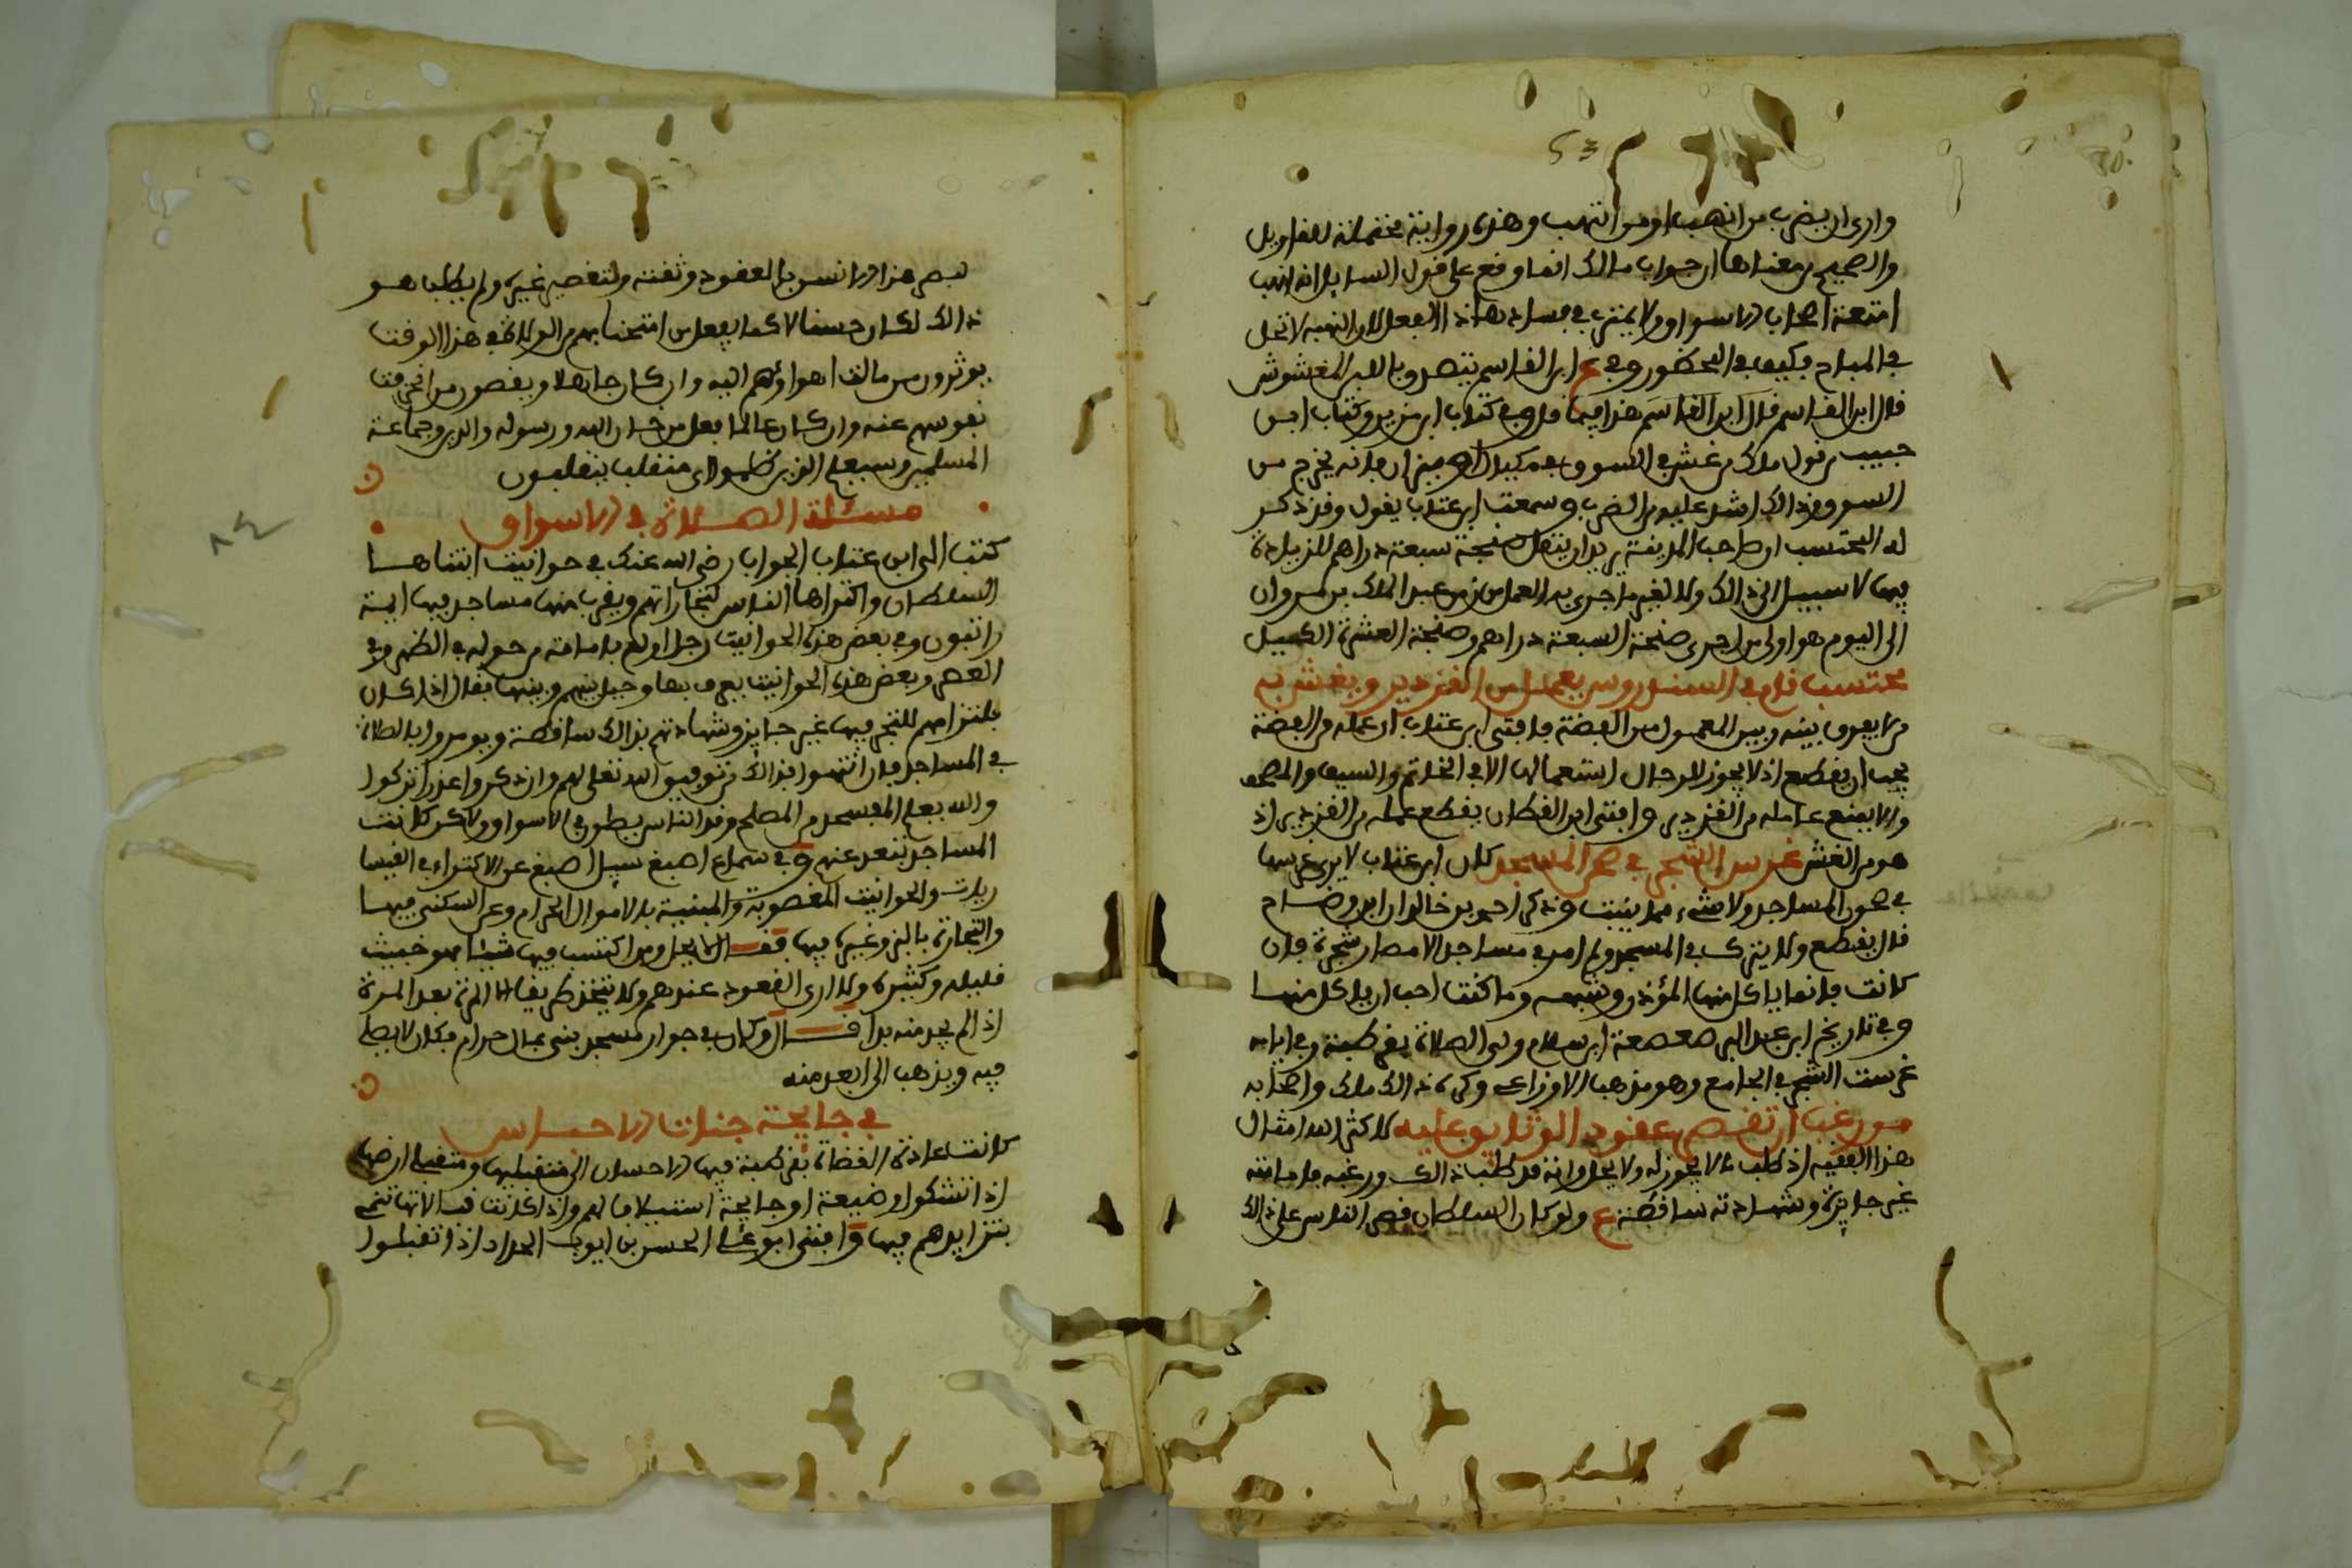 وارى ان يضرب من انتهب او من انتهب وهذه رواية محتملة للتاويل
والصحيح معناها ان جواب مالك انما وقع على قول السايل انه انهب
امتعة اصحاب الاسواق ولا يمترى في فساد هاذا الفعل لان النهبة لا تحل
في المباح فكيف في المحظور وفي ع ابن القاسم يتصدق باللبن المغشوش
قال ابن القاسم هذا فيما قل وفي كتاب ابن مزين وكتاب ابن
حبيب من قول مالك من غش في السوق في مكيال او ميزان فانه يخرج من
السوق وذالك اشد عليه من الضرب وسمعت ابن عتاب يقول وقد ذكر
له المحتسب او صاحب المدينة يريد ان ينقل صنجة سبعة دراهم للزيادة
فيها لا سبيل الى ذالك ولا لغير ما جرى به العمل من زمن عبد الملك بن مروان
الى اليوم هو اول من اجرى صنجة السبعة دراهم وصنجة العشرة الكيل
محتسب قام في السنار وس يعمل من القزدير ويغش به
ولا يعرف بينه وبين المعمول من الفضة فافتى ابن عتاب ان عمله من الفضة
يجب ان يقطع اذ لا يجوز للرجال استعمالها الا في الخاتم والسيف والمصحف
والا يمنع عامله من القزدير وافتى ابن القطان يقطع عمله من القزدير اذ
هو من الغش غرس الشجر في صحن المسجد كان ابن عتاب لا يرى غرسها
في صحون المساجد ولا شيء مما ينبت وذكر احمد بن خالد ان ابن وضاح
قال يقطع ولا يترك في المسجد ولم ار في مساجد الامصار شجرة فان
كانت فانما ياكل منها المؤذن وشبهه وما كنت احب ان ياكل منها
وفي تاريخ ابن عبد البر صعصعة ابن سلام ولي الصلاة بقرطبة وفي ايامه
غرست الشجر في الجامع وهو مذهب الاوزاعي وكره ذالك مالك واصحابه
من رغب ان تقصر عقود الوثايق عليه لا كثر الله امثال
هذا الفقيه اذ طلب ما لا يجوز له ولا يحل وانه قد طلب ذالك ورغبه فامامته
غير جايزة وشهادته ساقطة ع ولو كان السلطان قصر الناس على ذالك
لبصر هذا الانسان بالعقود وثقته ولتقصير غيره ولم يطلب هو
ذالك لكان حسنا لا كما يفعل من امتحنا بهم من الولاة في هذا الوقت
يوثرون من مالت اهواؤهم اليه وان كان جاهلا ويقصون من انحرفت
نفوسهم عنه وان كان عالما فعل من خان الله ورسوله والدين وجماعة
المسلمين وسيعلم الذين ظلموا اي منقلب ينقلبون
مسئلة الصلاة في الاسواق
كتب الى ابن عتاب الجواب رضي الله عنك في حوانيت ابتناها
السلطان واكتراها الناس لتجاراتهم وبقرب منها مساجد فيها ايمة
راتبون وفي بعض هذه الحوانيت رجل اولع بامامة من حوله في الظهر وفي
العصر وبعض هذه الحوانيت يعرف بها وحيل بينهم وبينها فقال اذا كان
فالتزامهم للتجر فيها غير جايز وشهادتهم بذالك ساقطة ويومروا بالصلاة
في المساجد فان انتهوا فذالك من توفيق الله تعلى لهم وان ذكروا عذرا تركوا
والله يعلم المفسد من المصلح وقد الناس يصلون في الاسواق ولاكن كانت
المساجد تبعد عنهم وفي سماع اصبغ سيل اصبغ عن الاكتراء في القيسا
ريات والحوانيت المغصوبة والمبنية بالاموال الحرام وعن السكنى فيها
والتجارة بالبز وغيره فيها فقال لا يحل ومن اكتسب فيها شيئا فهو خبيث
قليله وكثيره ولا ارى القعود عندهم ولا يتخذ طريقا الا المرة بعد المرة
اذا لم يجد منه بدا قال وكان في جوار مسجد بنى بمال حرام فكان لا يصلي
فيه ويذهب الى ابعد منه
في جايحة جنات الاحباس
كانت عادة القضاة بقرطبة فيها الاحسان الى متقبليها ومتقبلي ارضها
اذا تشكوا وضيعة او جايحة استيلافا لهم واذا كانت قبالاتها تنمى
بتزايدهم فيها وافتى ابو علي الحسن بن ايوب الحداد اذا تقبلوا
٨٤